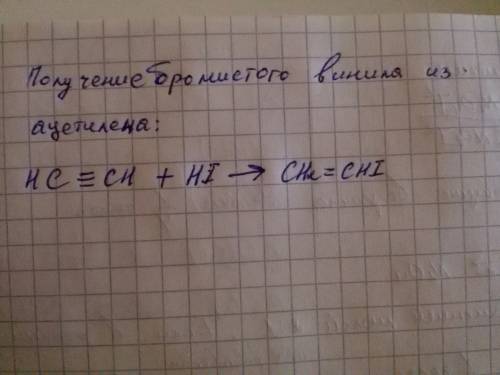 Получение бромистого винила из
ацетилена:
HC ≡ CH + HI → CH₂=CHI